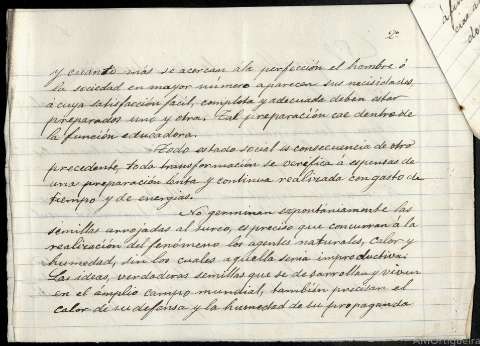 2º
y cuanto más se acercan á la perfección el hombre ó
la sociedad en mayor número aparecen sus necisidades,
á cuya satisfacción fácil, completa y adecuada deben estar
preparados uno y otra. Tal preparación cae dentro de
la función educadora.
Todo estado social es consecuencia de otro
precedente, toda transformación se verifica á expensas de
una preparación lenta y continua realizada con gasto de
tiempo y de energias.
No germinan expontániamente las
semillas arrojadas al surco, es preciso que concurran á la
realización del fenómeno los agentes naturales, calor y
humedad, sin los cuales aquella seria improductiva.
Las ideas, verdaderas semillas que se desarrollan y viven
en el ámplio campo mundial, también precisan el
calor de su defensa y la humedad de su propaganda
do
AMOrtigueira